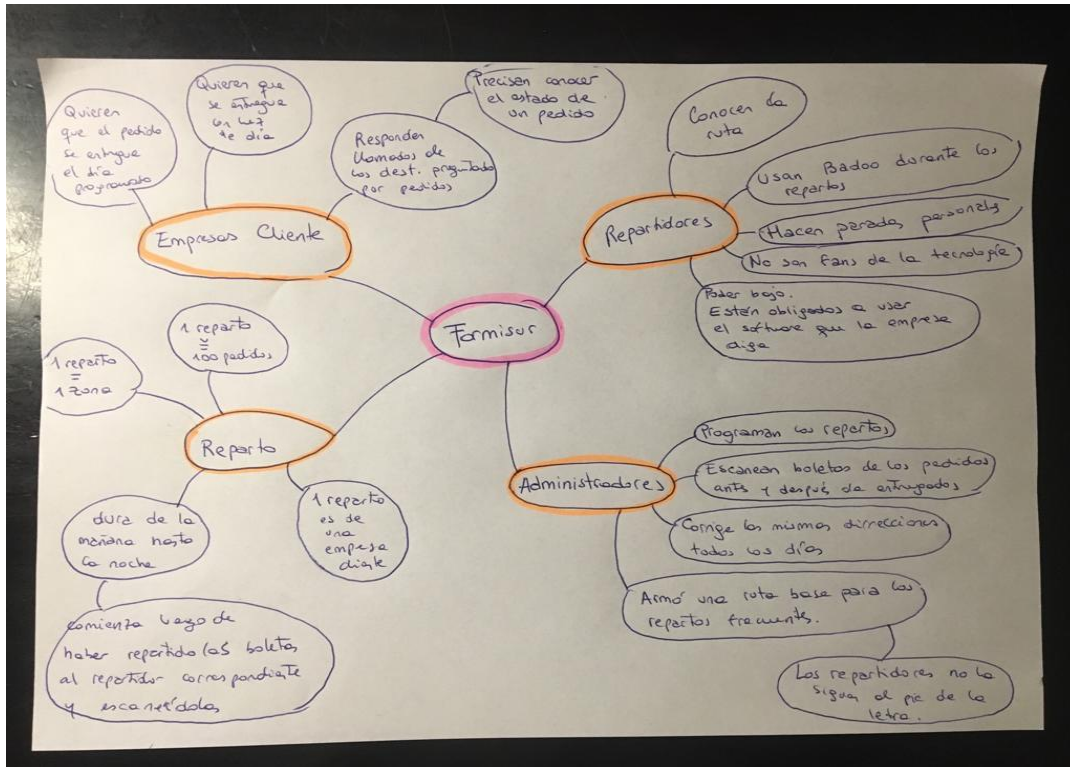 Formisur
Empresas Cliente
Quieren
que el pedido
se entregue
el día
programado
Quieren que
se entregue
en luz
de día
Responden
llamados de
los dest. preguntado
por pedidos
Precisan conocer
el estado de
un pedido
Repartidores
Conocen la
ruta
Usan Badoo durante los
repartos
Hacen paradas personales
No son fans de la tecnología
Poder bajo.
Están obligados a usar
el software que la empresa
diga
Reparto
1 reparto
=
1 zona
1 reparto
≚
100 pedidos
dura de la
mañana hasta
la noche
Comienza luego de
haber repartido las boletas
al repartidor correspondiente
y
1 reparto
es de
una
empresa
cliente
Administradores
Programan los repartos
Escanean boletas de los pedidos
antes y después de entregados
Corrige las mismas dirrecciones
todos los días
Armó una ruta base para los
repartos frecuentes.
Los repartidores no la
siguen al pie de la
letra.